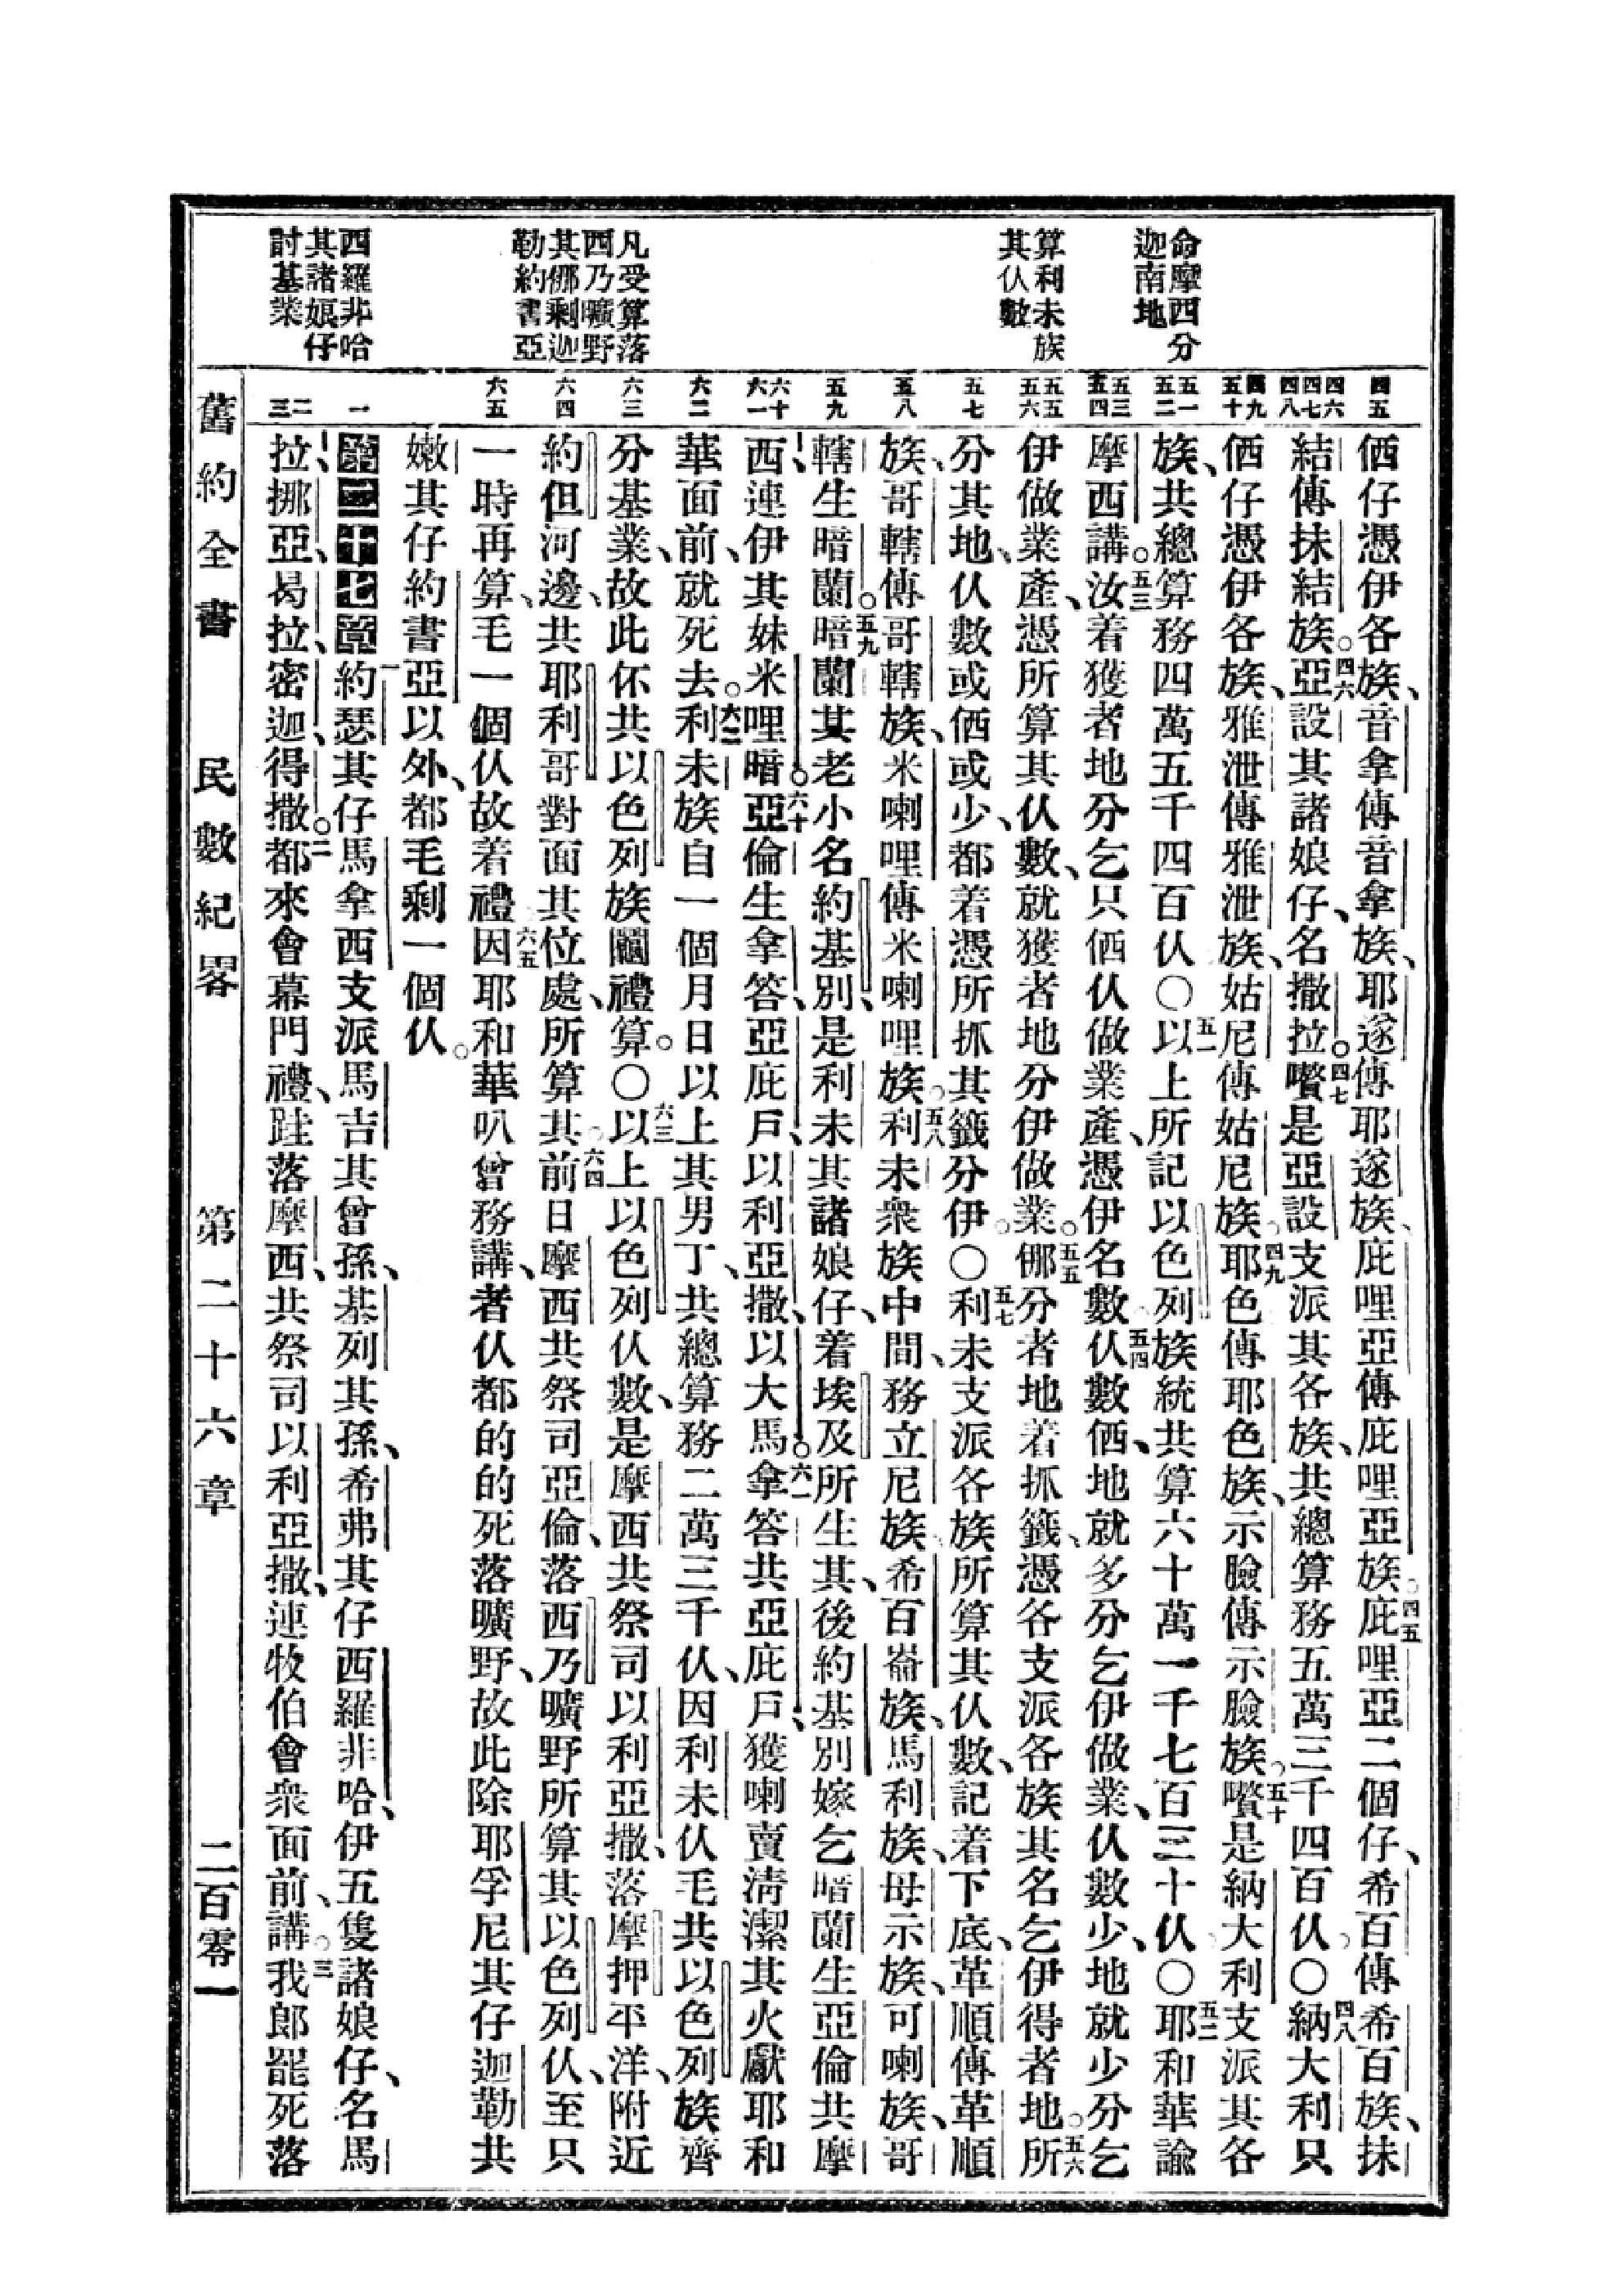 命摩西分
迦南地
算利未族
其仈數
凡受算落
西乃曠野
其㑚剩迦
勒約書亞
西羅非哈
其諸娘仔
討基業
四五
四六
四七
四八
四九
五十
五一
五二
五三
五四
五五
五六
五七
五八
五九
六十
六一
六二
六三
六四
六五
一
二
三
伵仔憑伊各族、音拿傳音拿族、耶遂傳耶遂族、庇哩亞傳庇哩亞族。四五庇哩亞二個仔、希百傳希百族、抹
結傳抹結族。四六亞設其諸娘仔、名撒拉。四七嚽是亞設支派其各族、共總算務五萬三千四百仈。〇四八納大利只
伵仔憑伊各族、雅泄傳雅泄族、姑尼傳姑尼族。四九耶色傳耶色族、示臉傳示臉族。五十嚽是納大利支派其各
族、共總算務四萬五千四百仈〇五一以上所記以色列族統共算六十萬一千七百三十仈。〇五二耶和華諭
摩西講。五三汝着獲者地分乞只伵仈做業產、憑伊名數。五四仈數伵、地就多分乞伊做業、仈數少、地就少分乞
伊做業產、憑所算其仈數、就獲者地分伊做業。五五㑚分者地着抓籤、憑各支派各族其名乞伊得者地。五六所
分其地、仈數或伵或少、都着憑所抓其籤分伊。〇五七利未支派各族所算其仈數、記着下底、革順傳革順
族、哥轄傳哥轄族、米喇哩傳米喇哩族。五八利未衆族中間、務立尼族、希百崙族、馬利族、母示族、可喇族、哥
轄生暗蘭。五九暗蘭其老小名約基別、是利未其諸娘仔、着埃及所生其、後約基別嫁乞暗蘭生亞倫共摩
西、連伊其妹米哩暗。六十亞倫生拿答、亞庇戶、以利亞撒、以大馬。六一拿答共亞庇戶、獲喇賣清潔其火獻耶和
華面前、就死去。六二利未族自一個月日以上其男丁、共總算務二萬三千仈、因利未仈毛共以色列族齊
分基業、故此伓共以色列族闂禮算。〇六三以上以色列仈數、是摩西共祭司以利亞撒、落摩押平洋、附近
約但河邊、共耶利哥對面其位處、所算其。六四前日摩西共祭司亞倫、落西乃曠野所算其以色列仈、至只
一時再算、毛一個仈故着禮。六五因耶和華叭曾務講、者仈都的的死落曠野、故此除耶孚尼其仔迦勒共
嫩其仔約書亞以外、都毛剩一個仈。
第二十七章一約瑟其仔馬拿西支派馬吉其曾孫、基列其孫、希弗其仔西羅非哈、伊五隻諸娘仔、名馬
拉、挪亞、曷拉、密迦、得撒。二都來會幕門禮、跬落摩西、共祭司以利亞撒、連牧伯會衆面前、講。三我郎罷死落
舊約全書 民數紀畧 第二十六章 二百零一